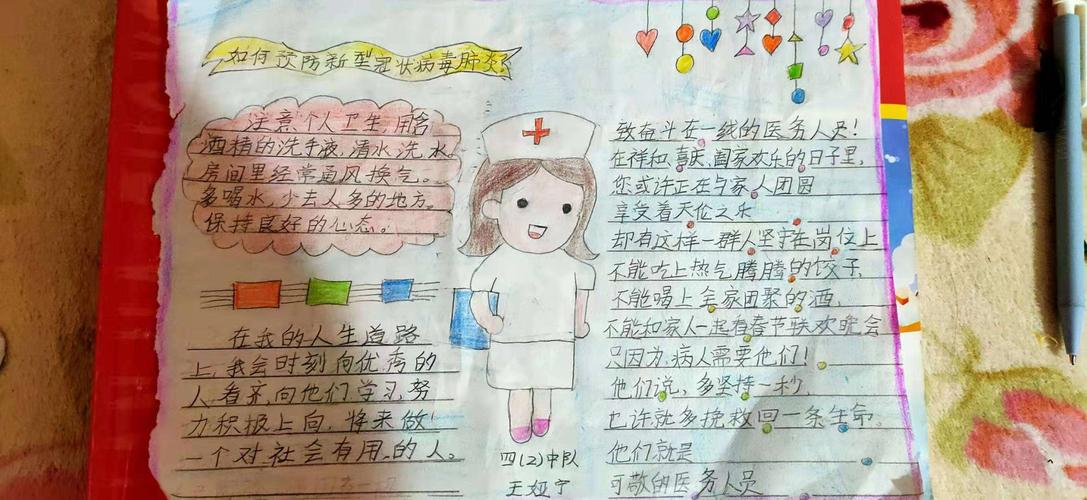 如何预防新型冠状病毒肺炎?
注意个人卫生,用含
酒精的洗手液,清水洗水,
房间里经常通风换气。
多喝水,少去人多的地方。
保持良好的心态。
在我的人生道路
上,我会时刻向优秀的
人看齐,向他们学习,努
力积极上向,将来做
一个对社会有用的人。
四(2)中队
王娅宁
致奋斗在一线的医务人员!
在祥和,喜庆,阖家欢乐的日子里,
您或许正在与家人团圆
享受着天伦之乐
却有这样一群人坚守在岗位上
不能吃上热气腾腾的饺子,
不能喝上全家团聚的酒,
不能和家人一起看春节联欢晚会
只因为,病人需要他们!
他们说,多坚持一秒,
也许就多挽救回一条生命。
他们就是
可敬的医务人员